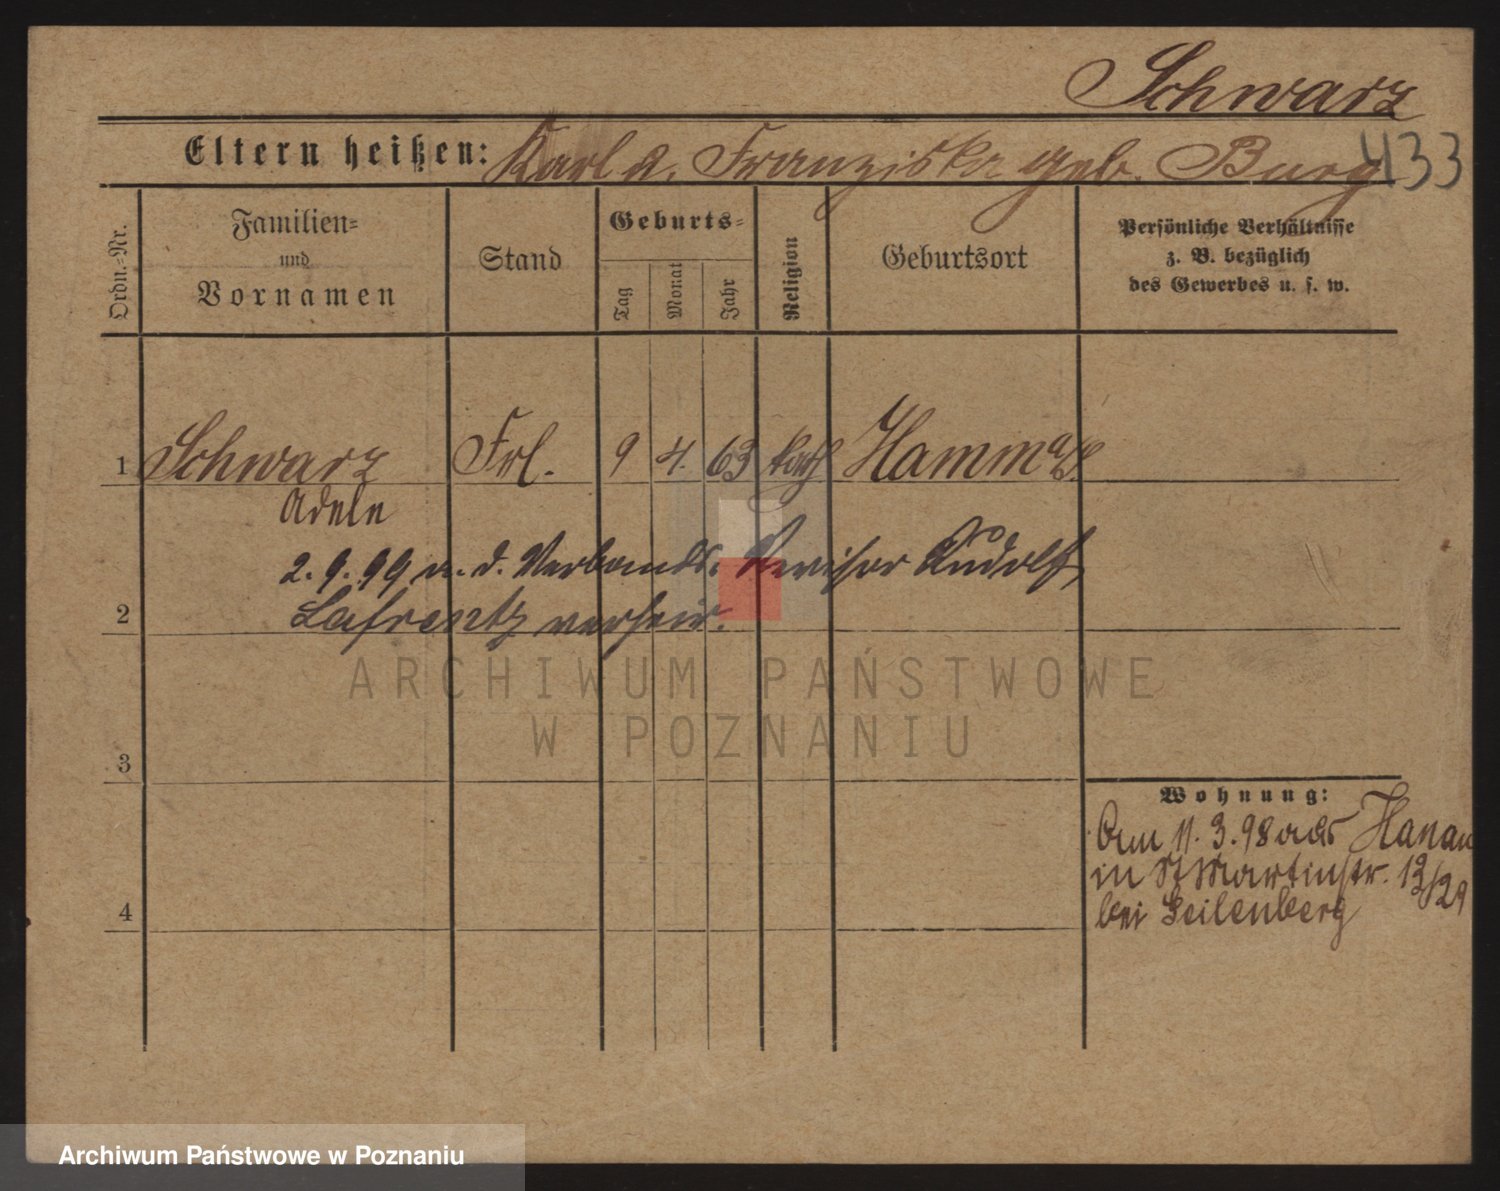 Schwarz
Eltern heißen: Karl u. Franziska geb. Burg
433
Ordn.=Nr.
Familien=
und
Vornamen
Stand
Geburts=
Tag
Monat
Jahr
Religion
Geburtsort
Persönliche Verhältnisse
z. B. bezüglich
des Gewerbes u. s. w.
1 Schwarz Frl. 9 4. 63 kath Hamm
Adele
2. 9. 99 m. d. Verbands-Revisor Rudolf
2 Lafrentz verheir.
ARCHIWUM PAŃSTWOWE
W POZNANIU
3
Wohnung:
Am 11. 3. 98 aus Hanau
in St Martinstr. 12/29
bei Geilenberg
4
Archiwum Państwowe w Poznaniu